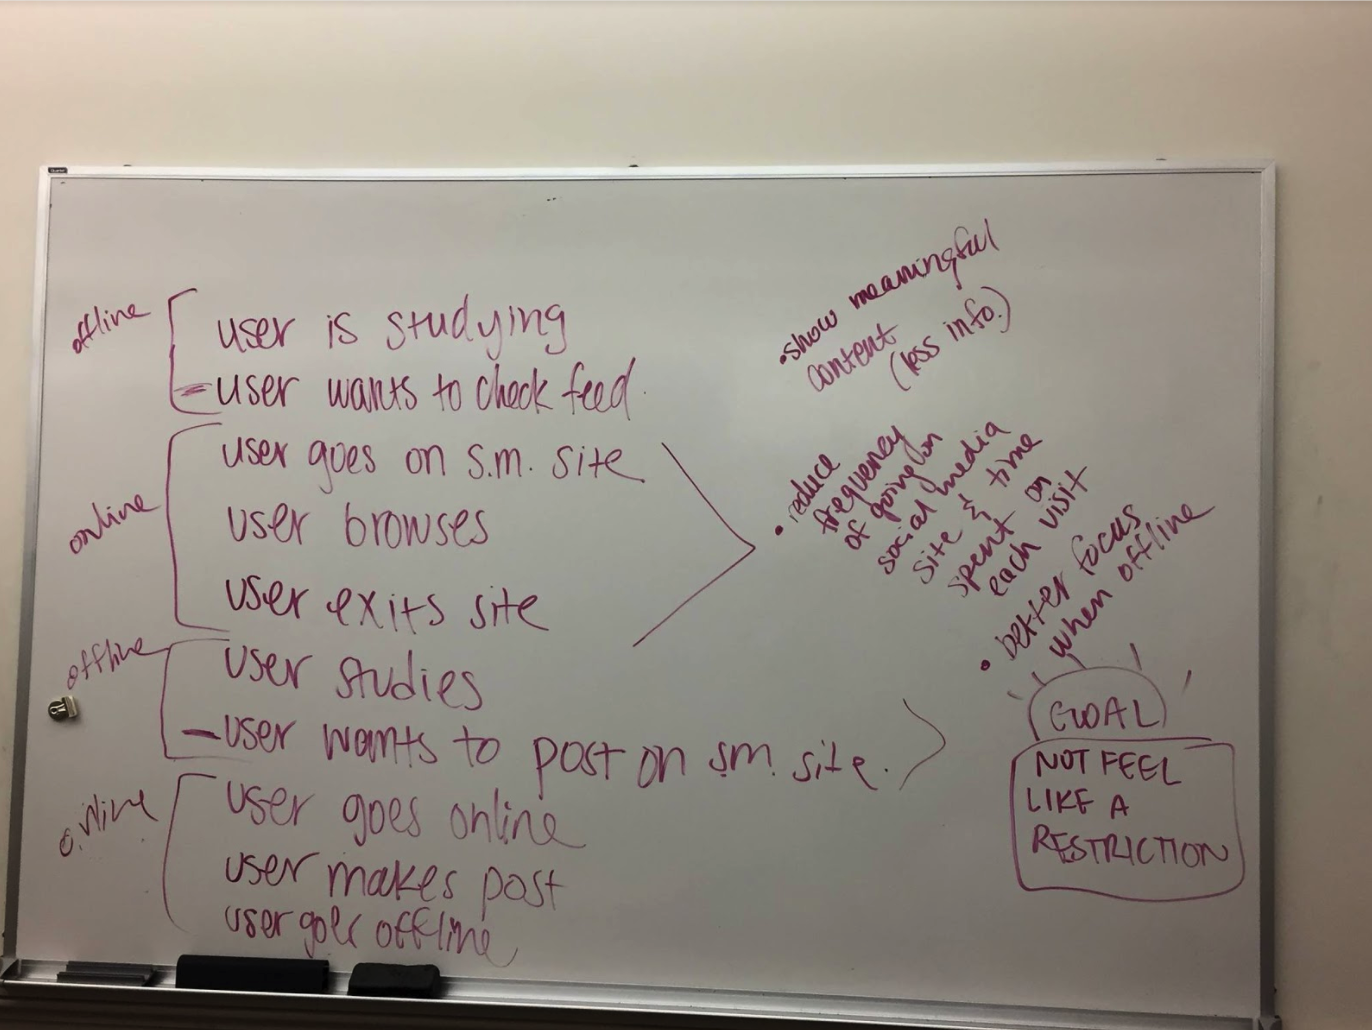 offline
user is studying
- user wants to check feed.
online
user goes on s.m. site
user browses
user exits site
offline
user studies
- user wants to post on s.m. site.
online
user goes online
user makes post
user goes offline
• show meaningful
content
(less info.)
• reduce
frequency
of going on
social media
site & time
spent on
each visit
• better focus
when offline
GOAL
NOT FEEL
LIKE A
RESTRICTION